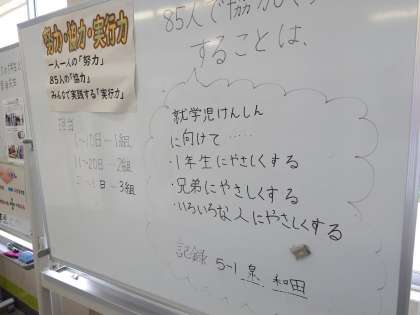 努力・協力・実行力
一人一人の「努力」
85人の「協力」
みんなで実践する「実行力」
85人で協力して
することは、
就学児けんしん
に向けて……
・1年生にやさしくする
・兄弟にやさしくする
・いろいろな人にやさしくする
記録 5-1 泉 和田
1~10日…1組
11~20日…2組
日…3組